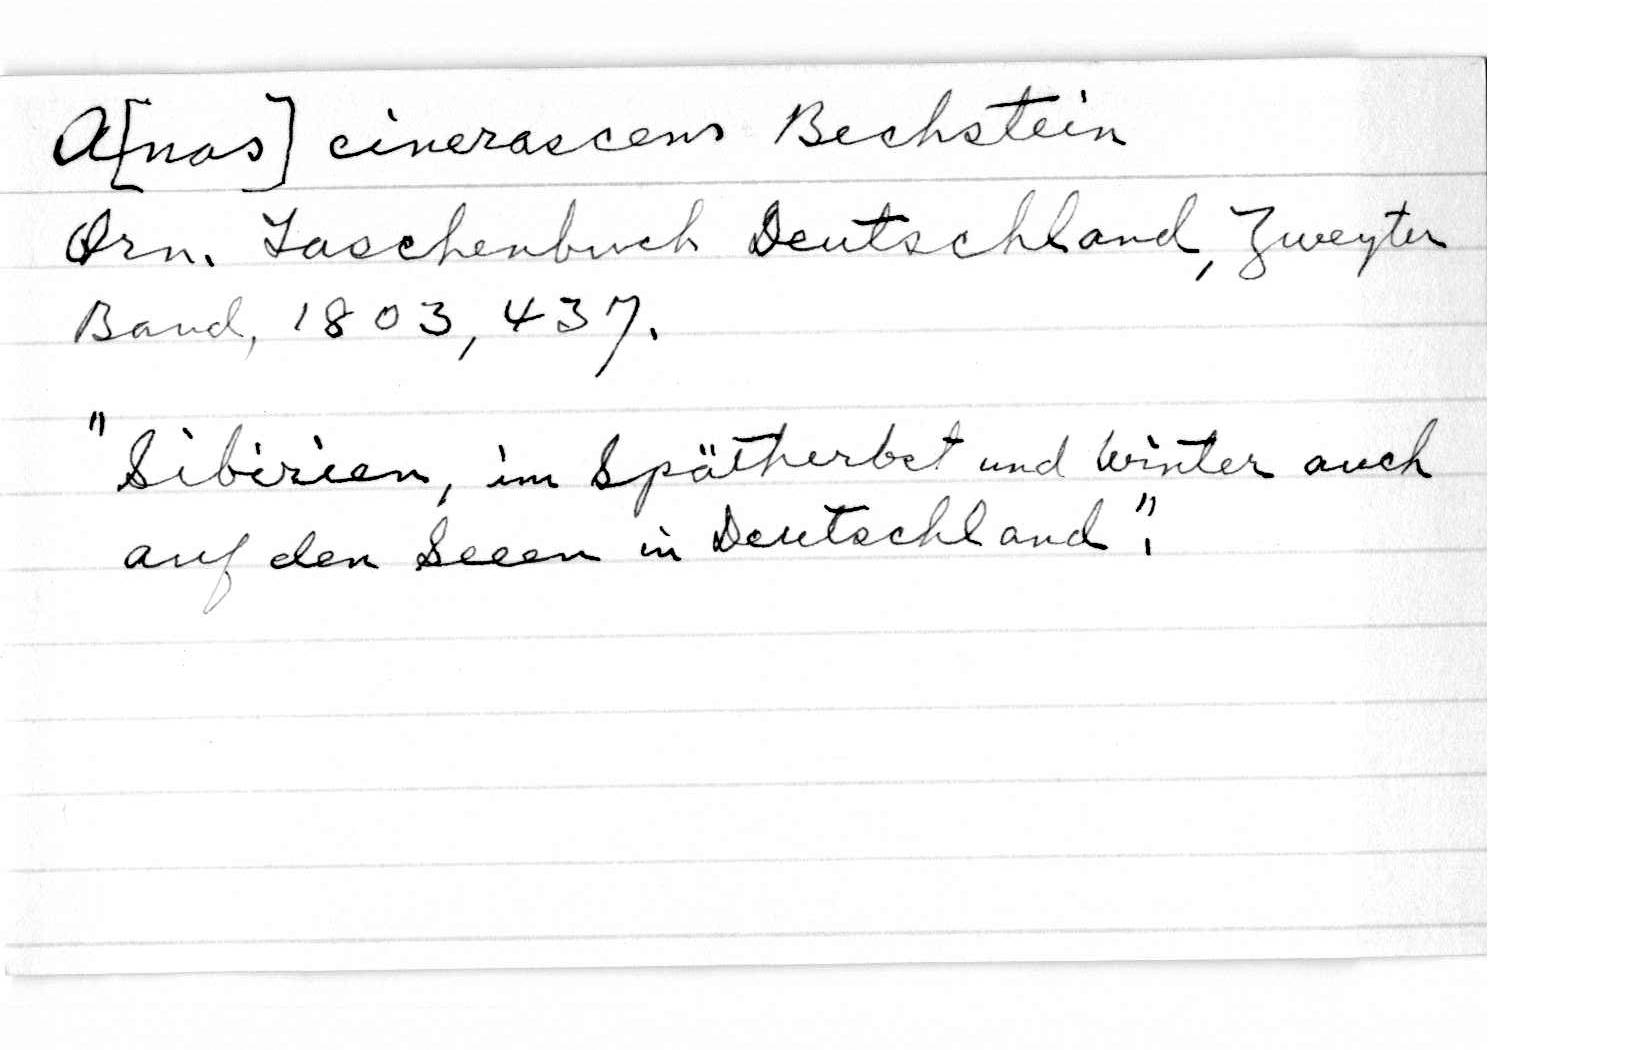 A[nas] cinerascens Bechstein
Orn. Taschenbuch Deutschland, Zweyter
Band, 1803, 437.
"Sibirien, im Spätherbst und Winter auch
auf den Seen in Deutschland".